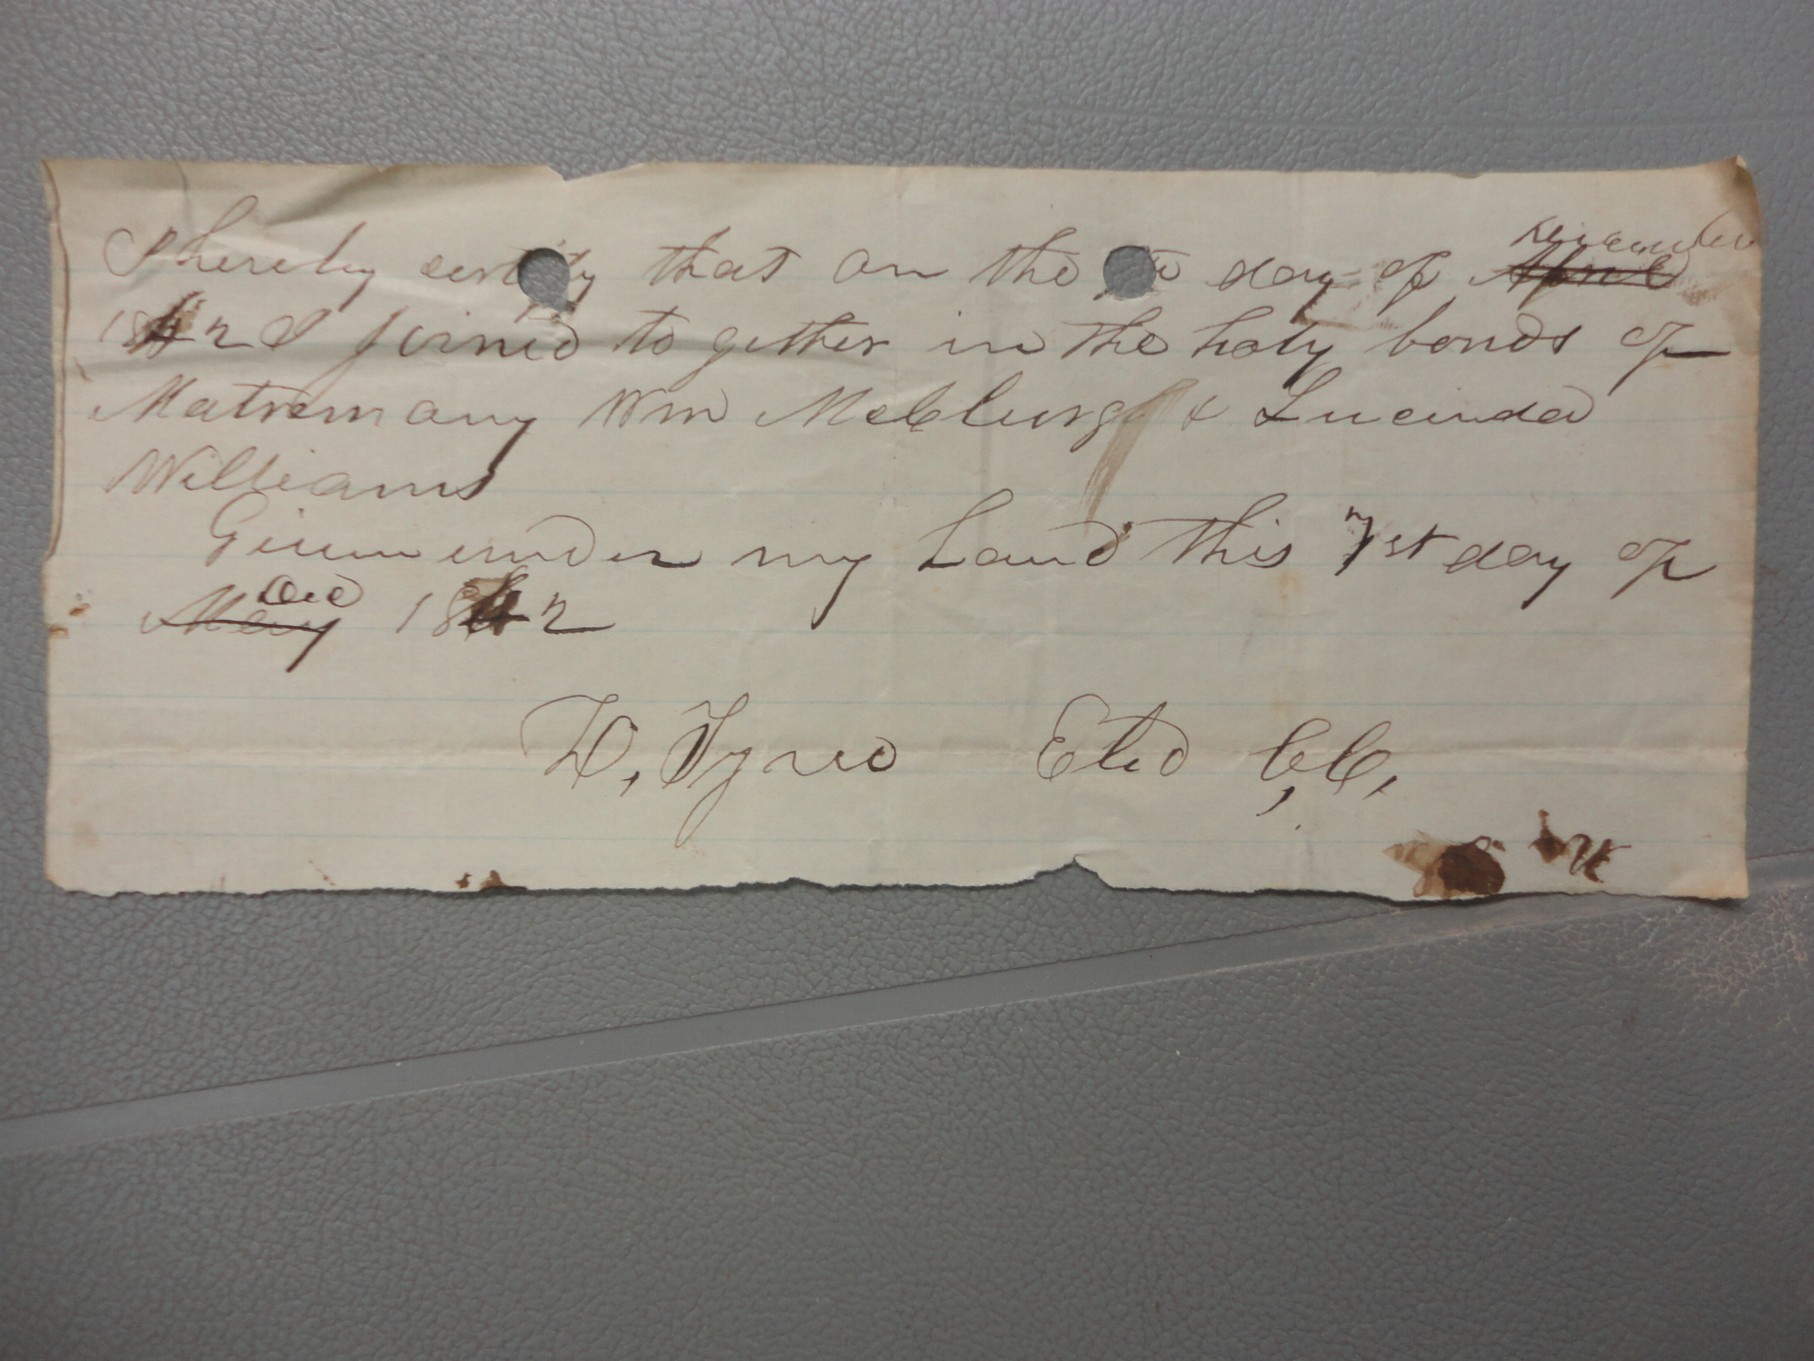 I hereby certify that on the day of December
1842 I joined to gether in the holy bonds of
Matremony Wm McClurg & Lucinda
Williams
Given under my hand this 7st day of
Dec 1842